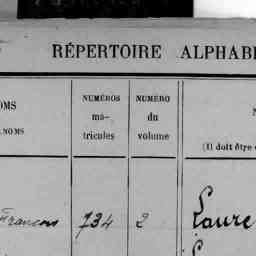 RÉPERTOIRE ALPHABÉ
OMS
NOMS
NUMÉROS
ma-
tricules
NUMÉRO
du
volume
N
(1) doit être
François 734 2 Laure